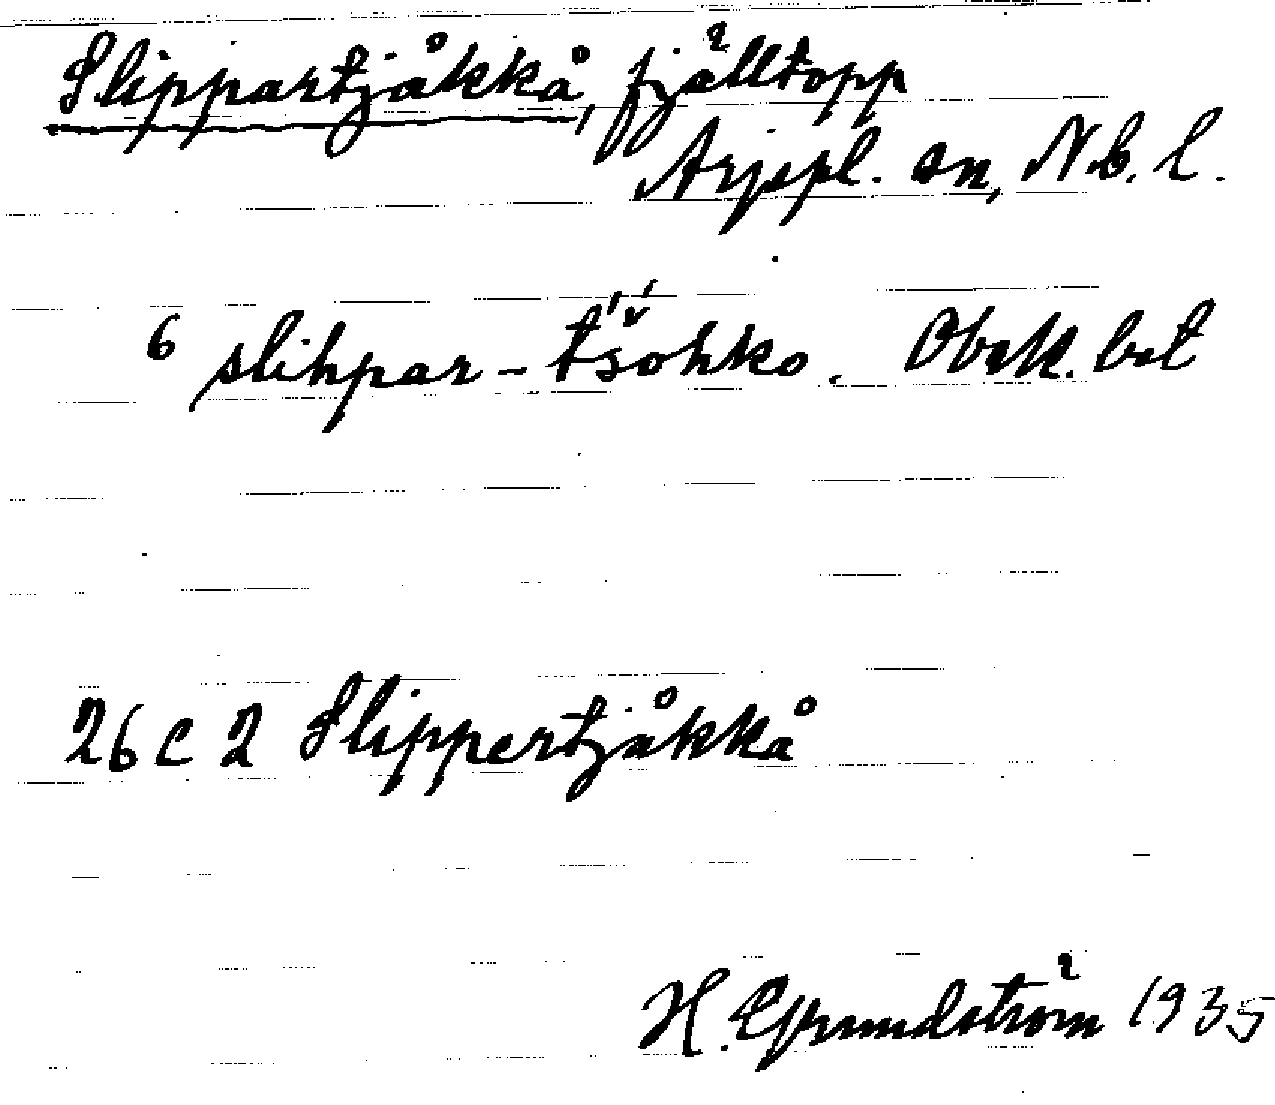 Slippartjåkkå, fjälltopp
Arjspl. sn, Nb. l.
6 slihpar-t́šohko. Obek. bet
26 C 2 Slippertjåkkå
H. Grundström 1935